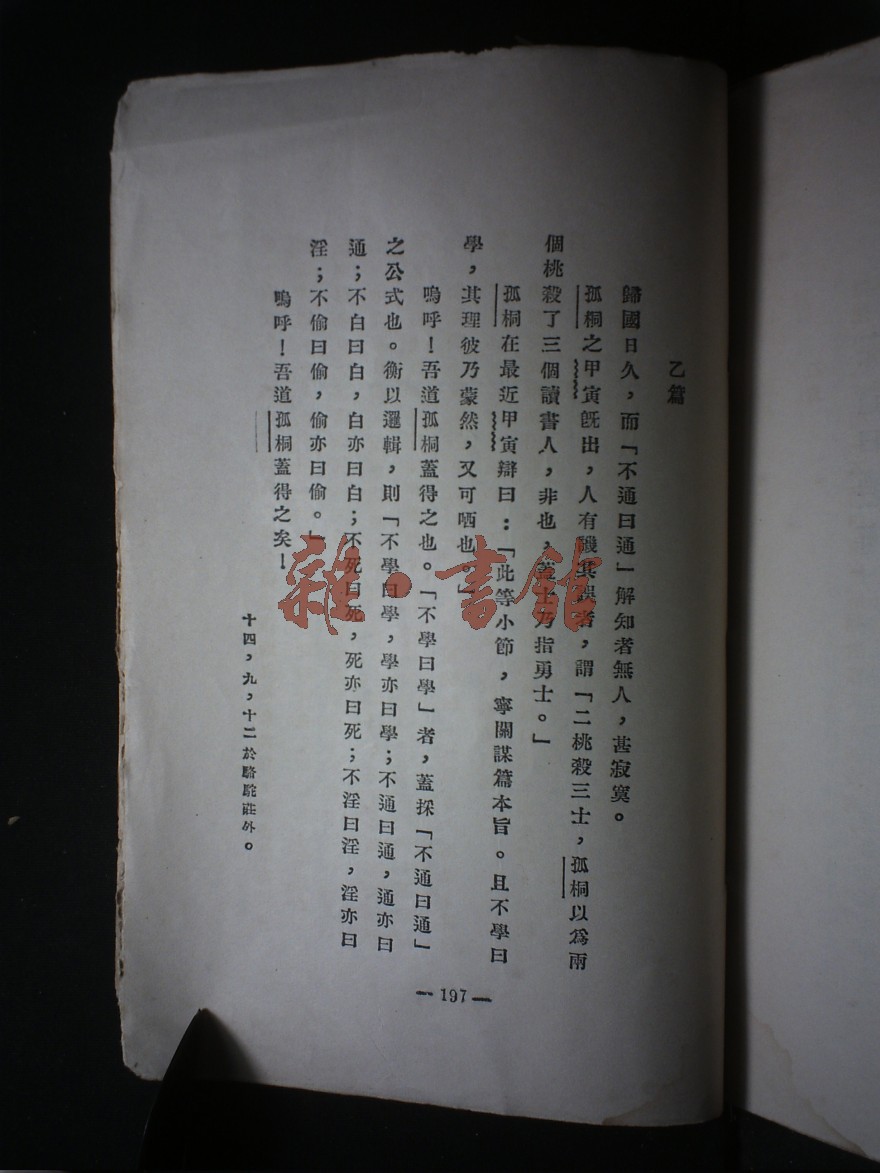 乙篇
歸國日久，而「不通曰通」解知者無人，甚寂寞。
孤桐之甲寅旣出，人有譏其誤者，謂「二桃殺三士，孤桐以爲兩
個桃殺了三個讀書人，非也，蓋士乃指勇士。」
孤桐在最近甲寅辯曰：「此等小節，寧關謀篇本旨。且不學曰
學，其理彼乃蒙然，又可哂也。」
嗚呼！吾道孤桐蓋得之也。「不學曰學」者，蓋採「不通曰通」
之公式也。衡以邏輯，則「不學曰學，學亦曰學；不通曰通，通亦曰
通；不白曰白，白亦曰白；不死曰死，死亦曰死；不淫曰淫，淫亦曰
淫；不偷曰偷，偷亦曰偷。」
嗚呼！吾道孤桐蓋得之矣！
十四，九，十二於駱駝莊外。
—197—
雜·書館